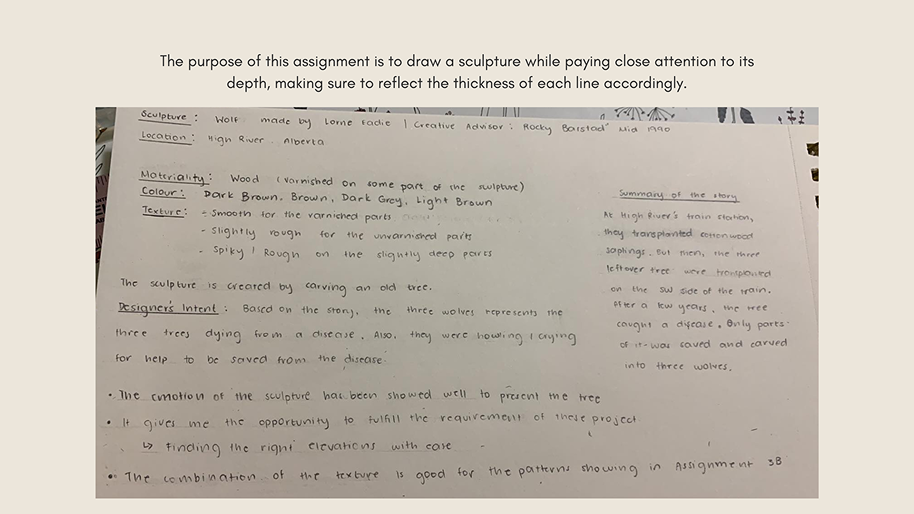 The purpose of this assignment is to draw a sculpture while paying close attention to its
depth, making sure to reflect the thickness of each line accordingly.
Sculpture : Wolf made by Lorne Eadie | Creative Advisor : Rocky Barstad Mid 1990
Location : High River Alberta
Materiality : Wood (varnished on some part of the sculpture)
Colour : Dark Brown, Brown, Dark Grey, Light Brown
Texture : - Smooth for the varnished parts
- Slightly rough for the unvarnished parts
- Spiky / Rough on the slightly deep parts
The sculpture is created by carving an old tree.
Designer's Intent : Based on the story, the three wolves represents the
three trees dying from a disease. Also, they were howling / crying
for help to be saved from the disease.
Summary of the story
At High River's train station,
they transplanted cottonwood
saplings. But then, the three
leftover tree were transplanted
on the SW side of the train.
After a few years, the tree
caught a disease. Only parts
of it was saved and carved
into three wolves.
• The emotion of the sculpture has been showed well to present the tree
• It gives me the opportunity to fulfill the requirement of these project
↳ Finding the right elevations with ease
• The combination of the texture is good for the patterns showing in Assignment 3B